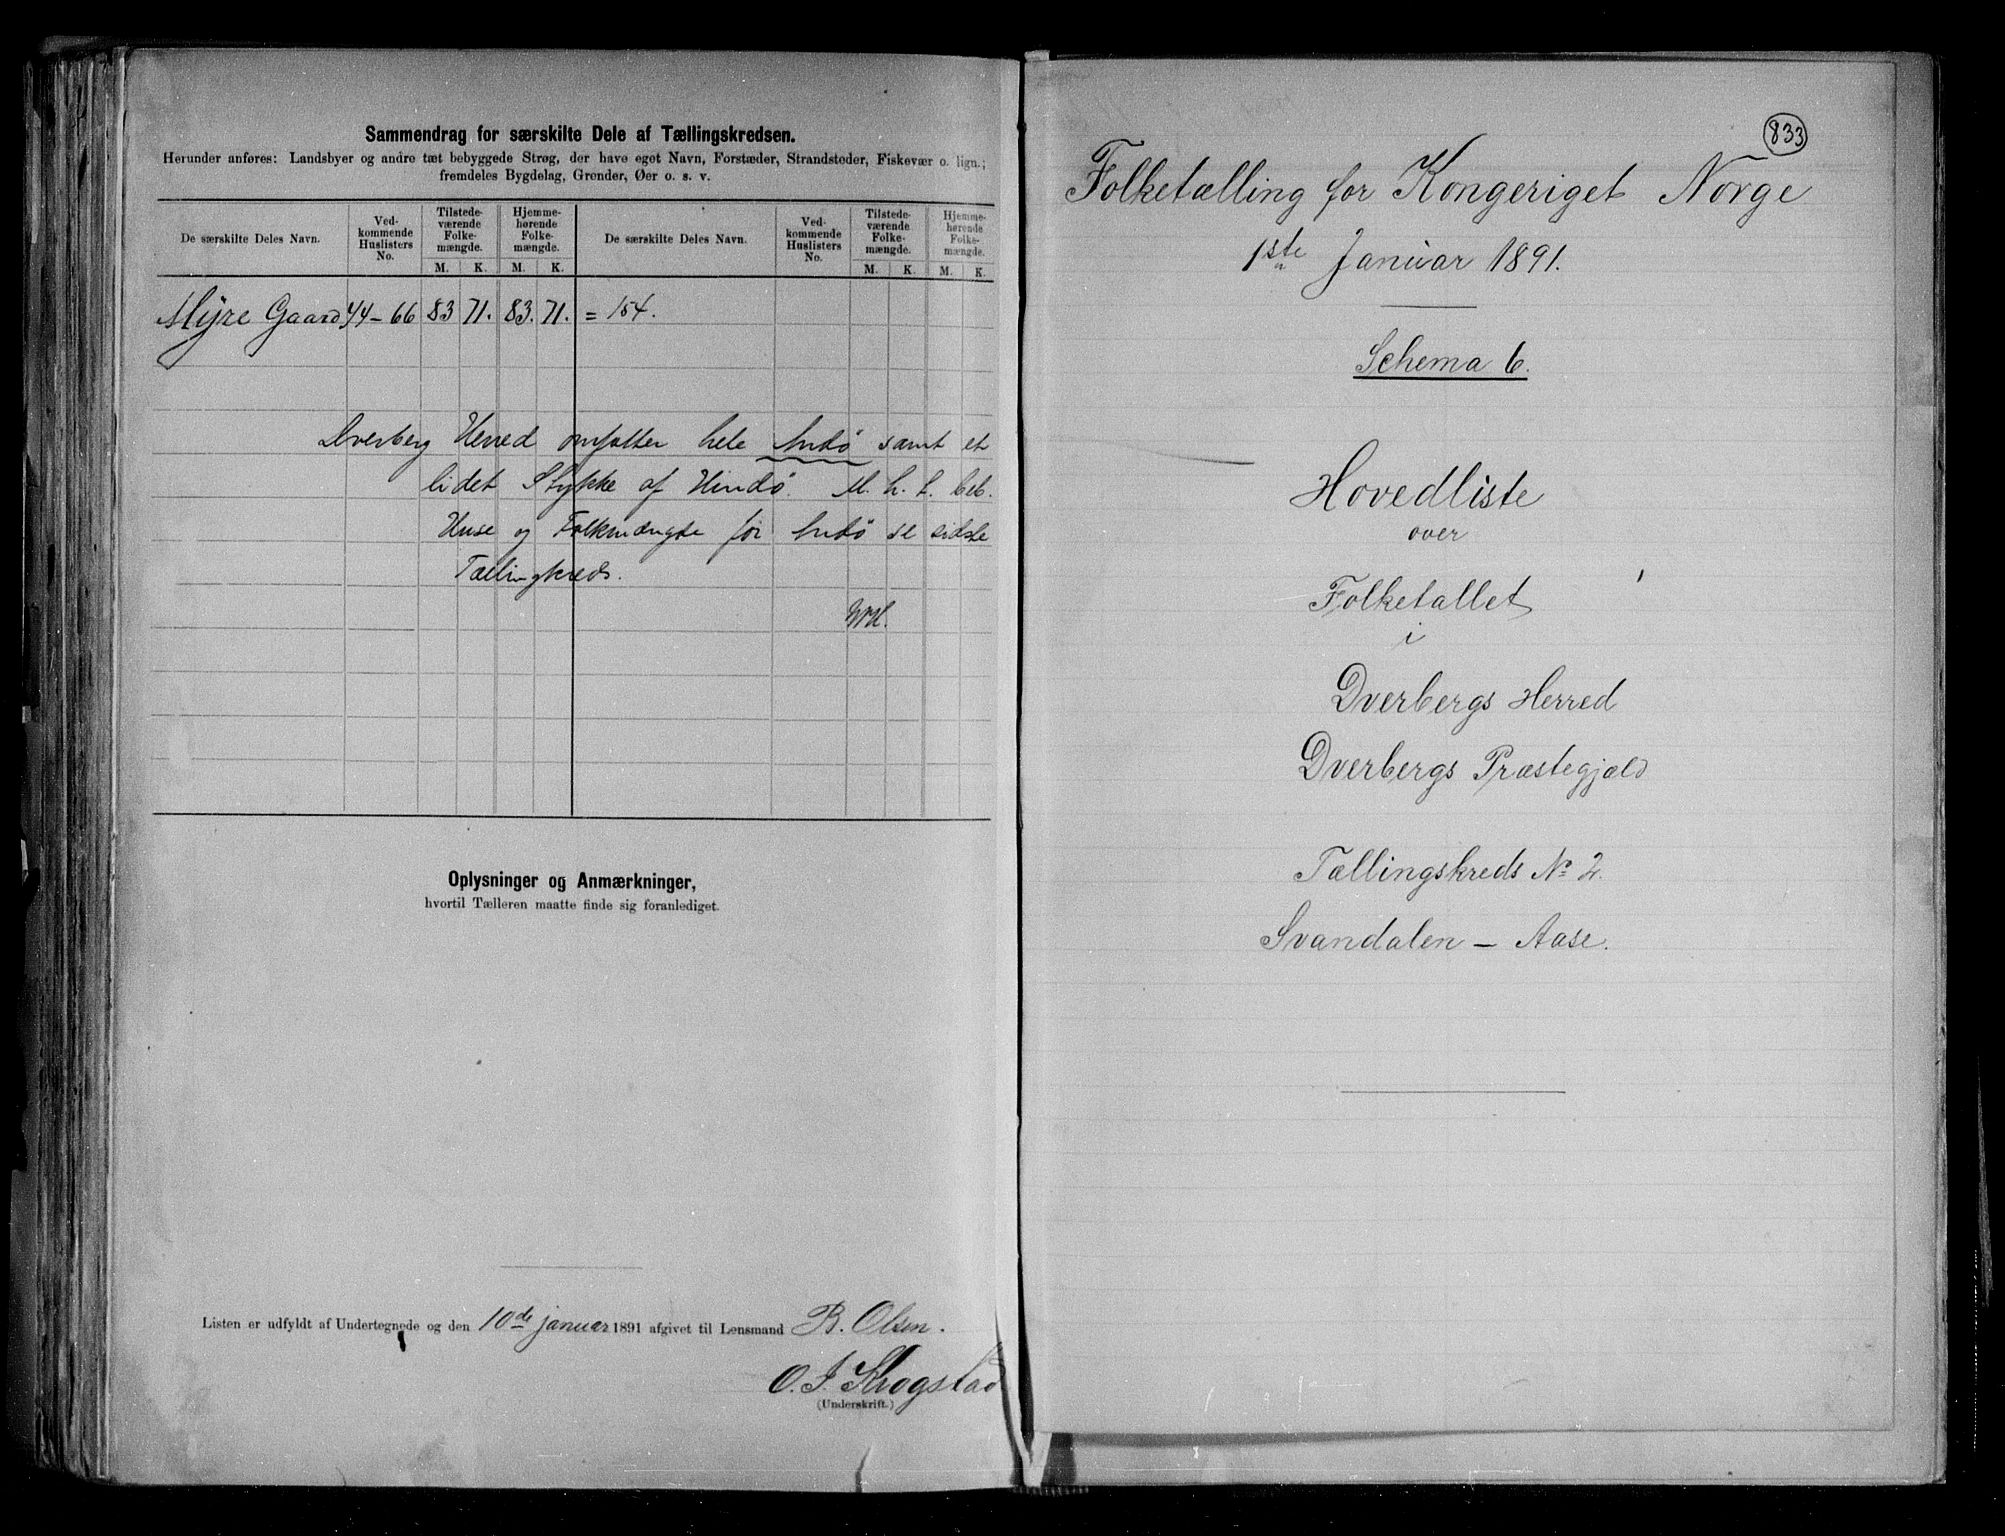 Sammendrag for særskilte Dele af Tællingskredsen.
Herunder anføres: Landsbyer og andre tæt bebyggede Strøg, der have eget Navn, Forstæder, Strandsteder, Fiskevær o. lign.;
fremdeles Bygdelag, Grender, Øer o. s. v.
De særskilte Deles Navn.
Ved-
kommende
Huslisters
No.
Tilstede-
værende
Folke-
mængde.
M. K.
Hjemme-
hørende
Folke-
mængde.
M. K.
De særskilte Deles Navn.
Ved-
kommende
Huslisters
No.
Tilstede-
værende
Folke-
mængde.
M. K.
Hjemme-
hørende
Folke-
mængde.
M. K.
Myre Gaard 44-66 83 71. 83. 71. = 154.
Dverberg Herred omfatter hele Andö samt et
lidet Stykke af Hindö. M. h. t. beb.
Huse og Folkemængde for Andö se sidste
Tællingskreds.
Oplysninger og Anmærkninger,
hvortil Tælleren maatte finde sig foranlediget.
Listen er udfyldt af Undertegnede og den 10de januar 1891 afgivet til Lensmand B. Olsen.
O. J. Krogstad
(Underskrift.)
833
Folketælling for Kongeriget Norge
1ste Januar 1891.
Schema 6.
Hovedliste
over
Folketallet
i
Dverbergs Herred
Dverbergs Præstegjæld
Tællingskreds No 2.
Svandalen - Aase.